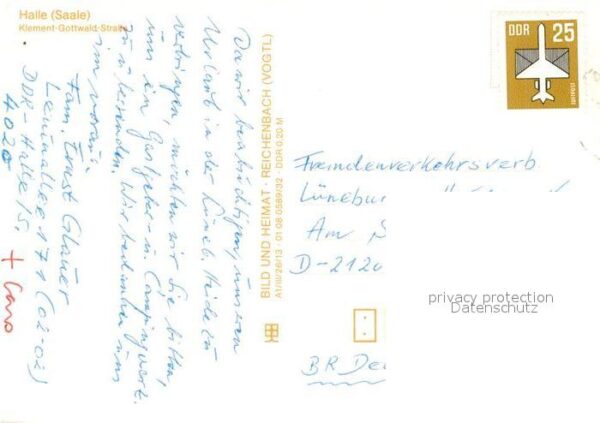 Halle (Saale)
Klement-Gottwald-Straße
Da wir beabsichtigen, unseren
Urlaub in der Lüneb. Heide zu
verbringen, möchten wir Sie bitten,
uns ein Gastgeber- u. Campingverz.
zu übersenden. Wir bedanken uns
im voraus.
Fam. Ernst Glauer
Leninallee 171 (02-02)
DDR-Halle/S.
4020
+ Caro
BILD UND HEIMAT · REICHENBACH (VOGTL)
A1/III/26/13 01 08 0589/32 · DDR 0,20 M
DDR 25
LUFTPOST
Fremdenverkehrsverb.
Lünebur
Am
D-2120
privacy protection
Datenschutz
BR De